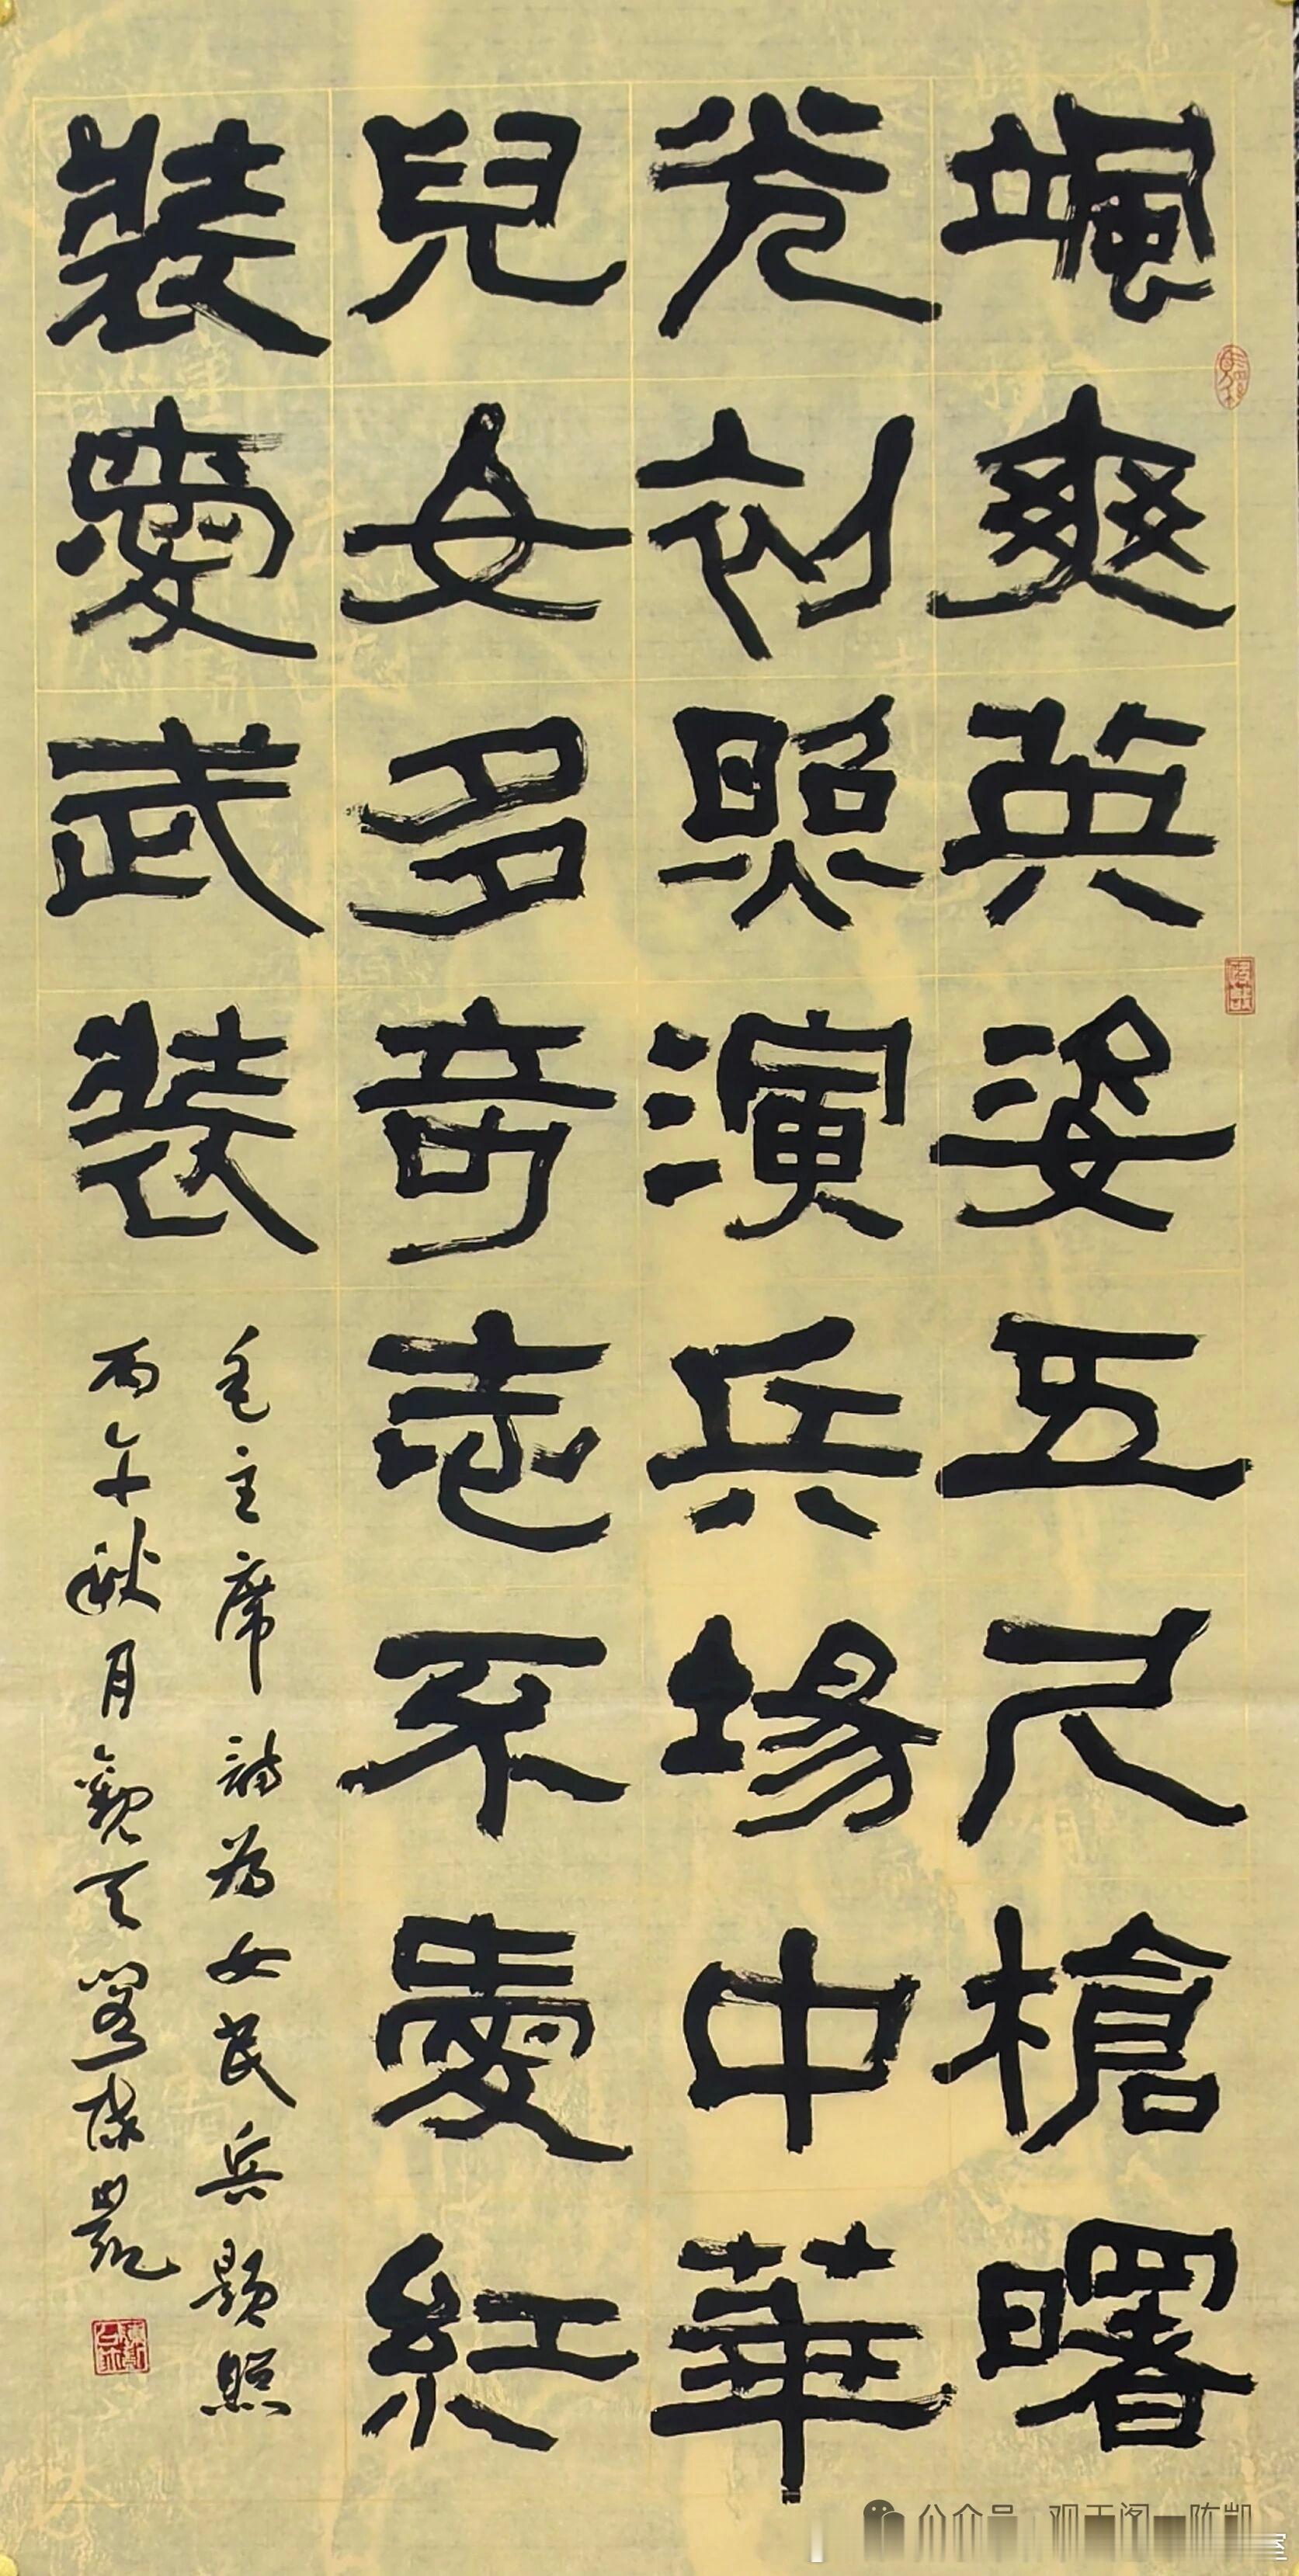 颯爽英姿五尺槍曙
光初照演兵場中華
兒女多奇志不愛紅
裝愛武裝
毛主席詩為女民兵題照
丙午秋月觀天閣陳凱